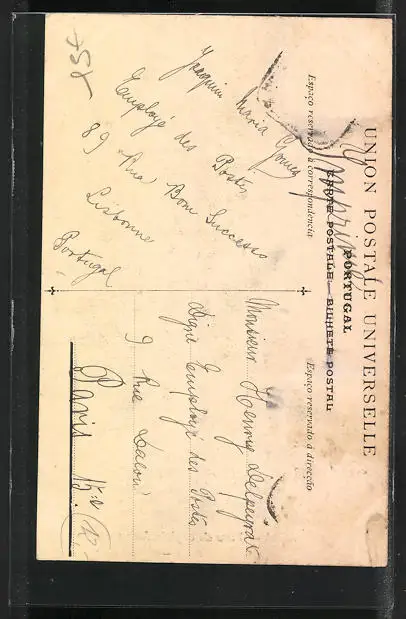 UNION POSTALE UNIVERSELLE
PORTUGAL
CARTE POSTALE - BILHETE POSTAL
Espaço reservado á correspondencia
Espaço reservado á direcção
Joaquim Maria Gomes
Employé des Postes
89 Rua Bom Successo
Lisbonne
Portugal
Monsieur Henry Delpeyrat
Digne Employé des Postes
9 Rue
Paris 15e